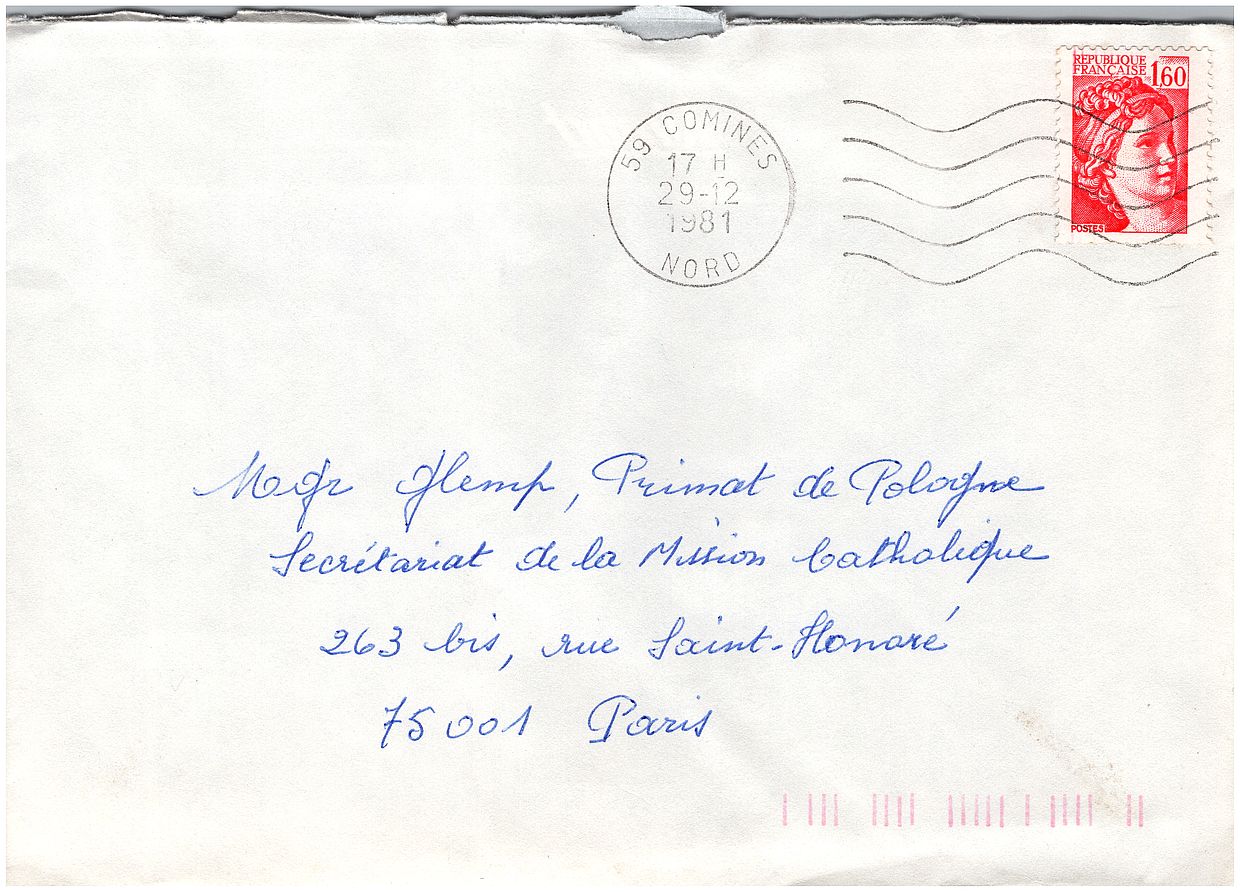 RÉPUBLIQUE
FRANÇAISE 1,60
POSTES
59 COMINES
17 H
29-12
1981
NORD
Mgr Glemp, Primat de Pologne
Secrétariat de la Mission Catholique
263 bis, rue Saint-Honoré
75001 Paris